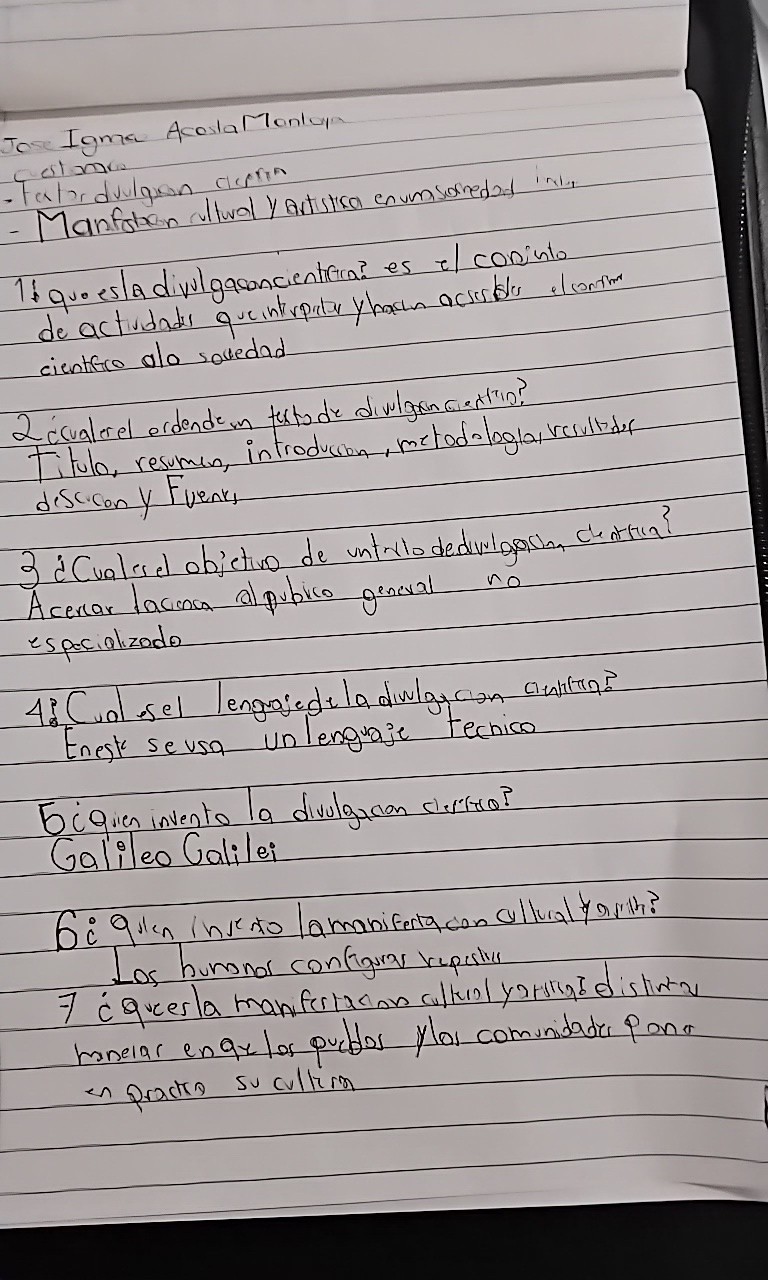 Jose Igma Acosta Montoya
- Manfstacn cultural y artistica en um sociedad
1¿ que es la divulgaconcientifica? es el conjnto
de actividades que intrpretar y hacen acsesbles el
cientfico ala sociedad
2 ¿cual es el orden de un texto de divulgcn cientfin?
Titulo, resumen, introduccion, metodologia, resultados
discucon y Fuents
3 ¿Cual es el objetivo de un texto de divulgacin cientfica?
Acercar la cienca al pubico general no
especializado
4¿ Cual es el lenguaje de la divulgacion cientifica?
En este se usa un lenguaje tecnico
5 ¿quien invento la divulgacion cientfica?
Galileo Galilei
6¿ quien invento la manifestacon cultural y
Los humanos con figuras rupestres
7 ¿que es la manifestacion cultural y distintas
maneras en que los pueblos y las comunidades ponen
en practica su cultura